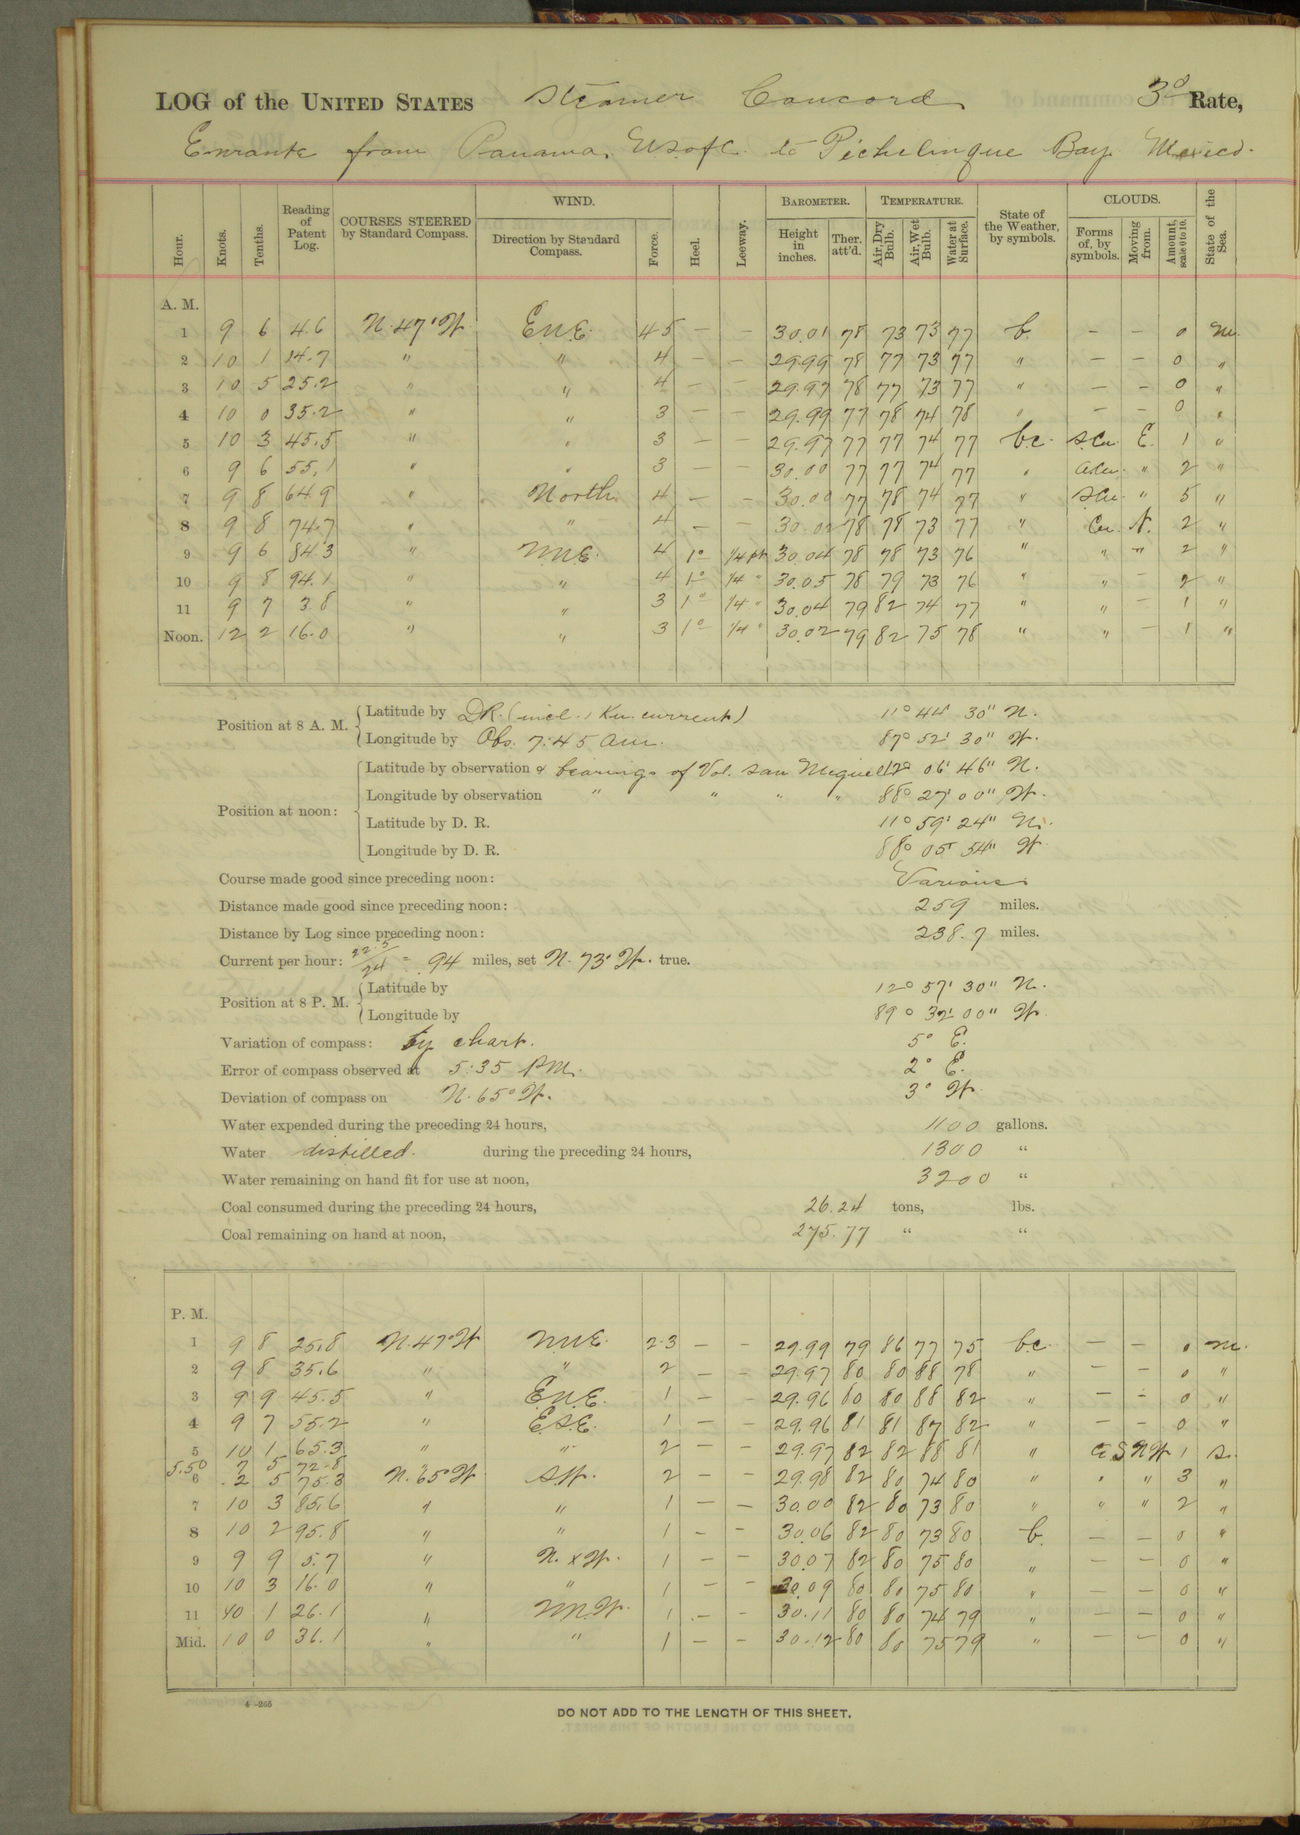 LOG of the UNITED STATES Steamer Concord 3d Rate,
Enroute from Panama, U.S. of C. to Pichelinque Bay Mexico.
Hour. Knots. Tenths. Reading of Patent Log. COURSES STEERED by Standard Compass. WIND. Direction by Standard Compass. Force. Heel. Leeway. BAROMETER. Height in inches. Ther. att'd. TEMPERATURE. Air, Dry Bulb. Air, Wet Bulb. Water at Surface. State of the Weather, by symbols. CLOUDS. Forms of, by symbols. Moving from. Amount, scale 0 to 10. State of the Sea.
A. M.
1 9 6 4.6 N. 47° W ENE. 4-5 — — 30.01 78 73 73 77 b. — — 0 m.
2 10 1 14.7 " " 4 — — 29.99 78 77 73 77 " — — 0 "
3 10 5 25.2 " " 4 — — 29.97 78 77 73 77 " — — 0 "
4 10 0 35.2 " " 3 — — 29.99 77 78 74 78 " — — 0 "
5 10 3 45.5 " " 3 — — 29.97 77 77 74 77 bc. S.Cu. E. 1 "
6 9 6 55.1 " " 3 — — 30.00 77 77 74 77 " A.Cu. " 2 "
7 9 8 64.9 " North. 4 — — 30.00 77 78 74 77 " S.Cu. " 5 "
8 9 8 74.7 " " 4 — 30.02 78 78 73 77 " Cu. N. 2 "
9 9 6 84.3 " NNE. 4 1° 1/4 pt 30.04 78 78 73 76 " " " 2 "
10 9 8 94.1 " " 4 1° 1/4 " 30.05 78 79 73 76 " " — 2 "
11 9 7 3.8 " " 3 1° 1/4 " 30.04 79 82 74 77 " " — 1 "
Noon. 12 2 16.0 " " 3 1° 1/4 " 30.02 79 82 75 78 " " — 1 "
Position at 8 A. M. Latitude by DR. (incl. 1 Kn. current) 11° 44' 30" N.
Longitude by Obs. 7:45 am. 87° 52' 30" W.
Position at noon: Latitude by observation & bearings of Vol. San Miguel 12° 06' 46" N.
Longitude by observation " " " " 88° 27' 00" W.
Latitude by D. R. 11° 59' 24" N.
Longitude by D. R. 88° 05' 54" W
Course made good since preceding noon: Various
Distance made good since preceding noon: 259 miles.
Distance by Log since preceding noon: 238.7 miles.
Current per hour: 22.5/24 = .94 miles, set N. 73° W. true.
Position at 8 P. M. Latitude by 12° 57' 30" N.
Longitude by 89° 32' 00" W.
Variation of compass: by chart. 5° E.
Error of compass observed at 5:35 P.M. 2° E.
Deviation of compass on N. 65° W. 3° W.
Water expended during the preceding 24 hours, 1100 gallons.
Water distilled. during the preceding 24 hours, 1300 "
Water remaining on hand fit for use at noon, 3200 "
Coal consumed during the preceding 24 hours, 26.24 tons, lbs.
Coal remaining on hand at noon, 275.77 " "
P. M.
1 9 8 25.8 N. 47° W NNE. 2-3 — — 29.99 79 86 77 75 bc. — — 0 m.
2 9 8 35.6 " " 2 — — 29.97 80 80 88 78 " — — 0 "
3 9 9 45.5 " E.N.E. 1 — — 29.96 80 80 88 82 " — — 0 "
4 9 7 55.2 " E.S.E. 1 — — 29.96 81 81 87 82 " — — 0 "
5 10 1 65.3 " " 2 — — 29.97 82 82 88 81 " C.S NW 1 S.
5.50 7 5 72.8
6 2 5 75.3 N. 65° W S.W. 2 — — 29.98 82 80 74 80 " " " 3 "
7 10 3 85.6 " " 1 — — 30.00 82 80 73 80 " " " 2 "
8 10 2 95.8 " " 1 — — 30.06 82 80 73 80 b. — — 0 "
9 9 9 5.7 " N. x W. 1 — — 30.07 82 80 75 80 " — — 0 "
10 10 3 16.0 " " 1 — — 30.09 80 80 75 80 " — — 0 "
11 10 1 26.1 " NN.W. 1 — — 30.11 80 80 74 79 " — — 0 "
Mid. 10 0 36.1 " " 1 — — 30.12 80 80 75 79 " — — 0 "
4—266
DO NOT ADD TO THE LENGTH OF THIS SHEET.